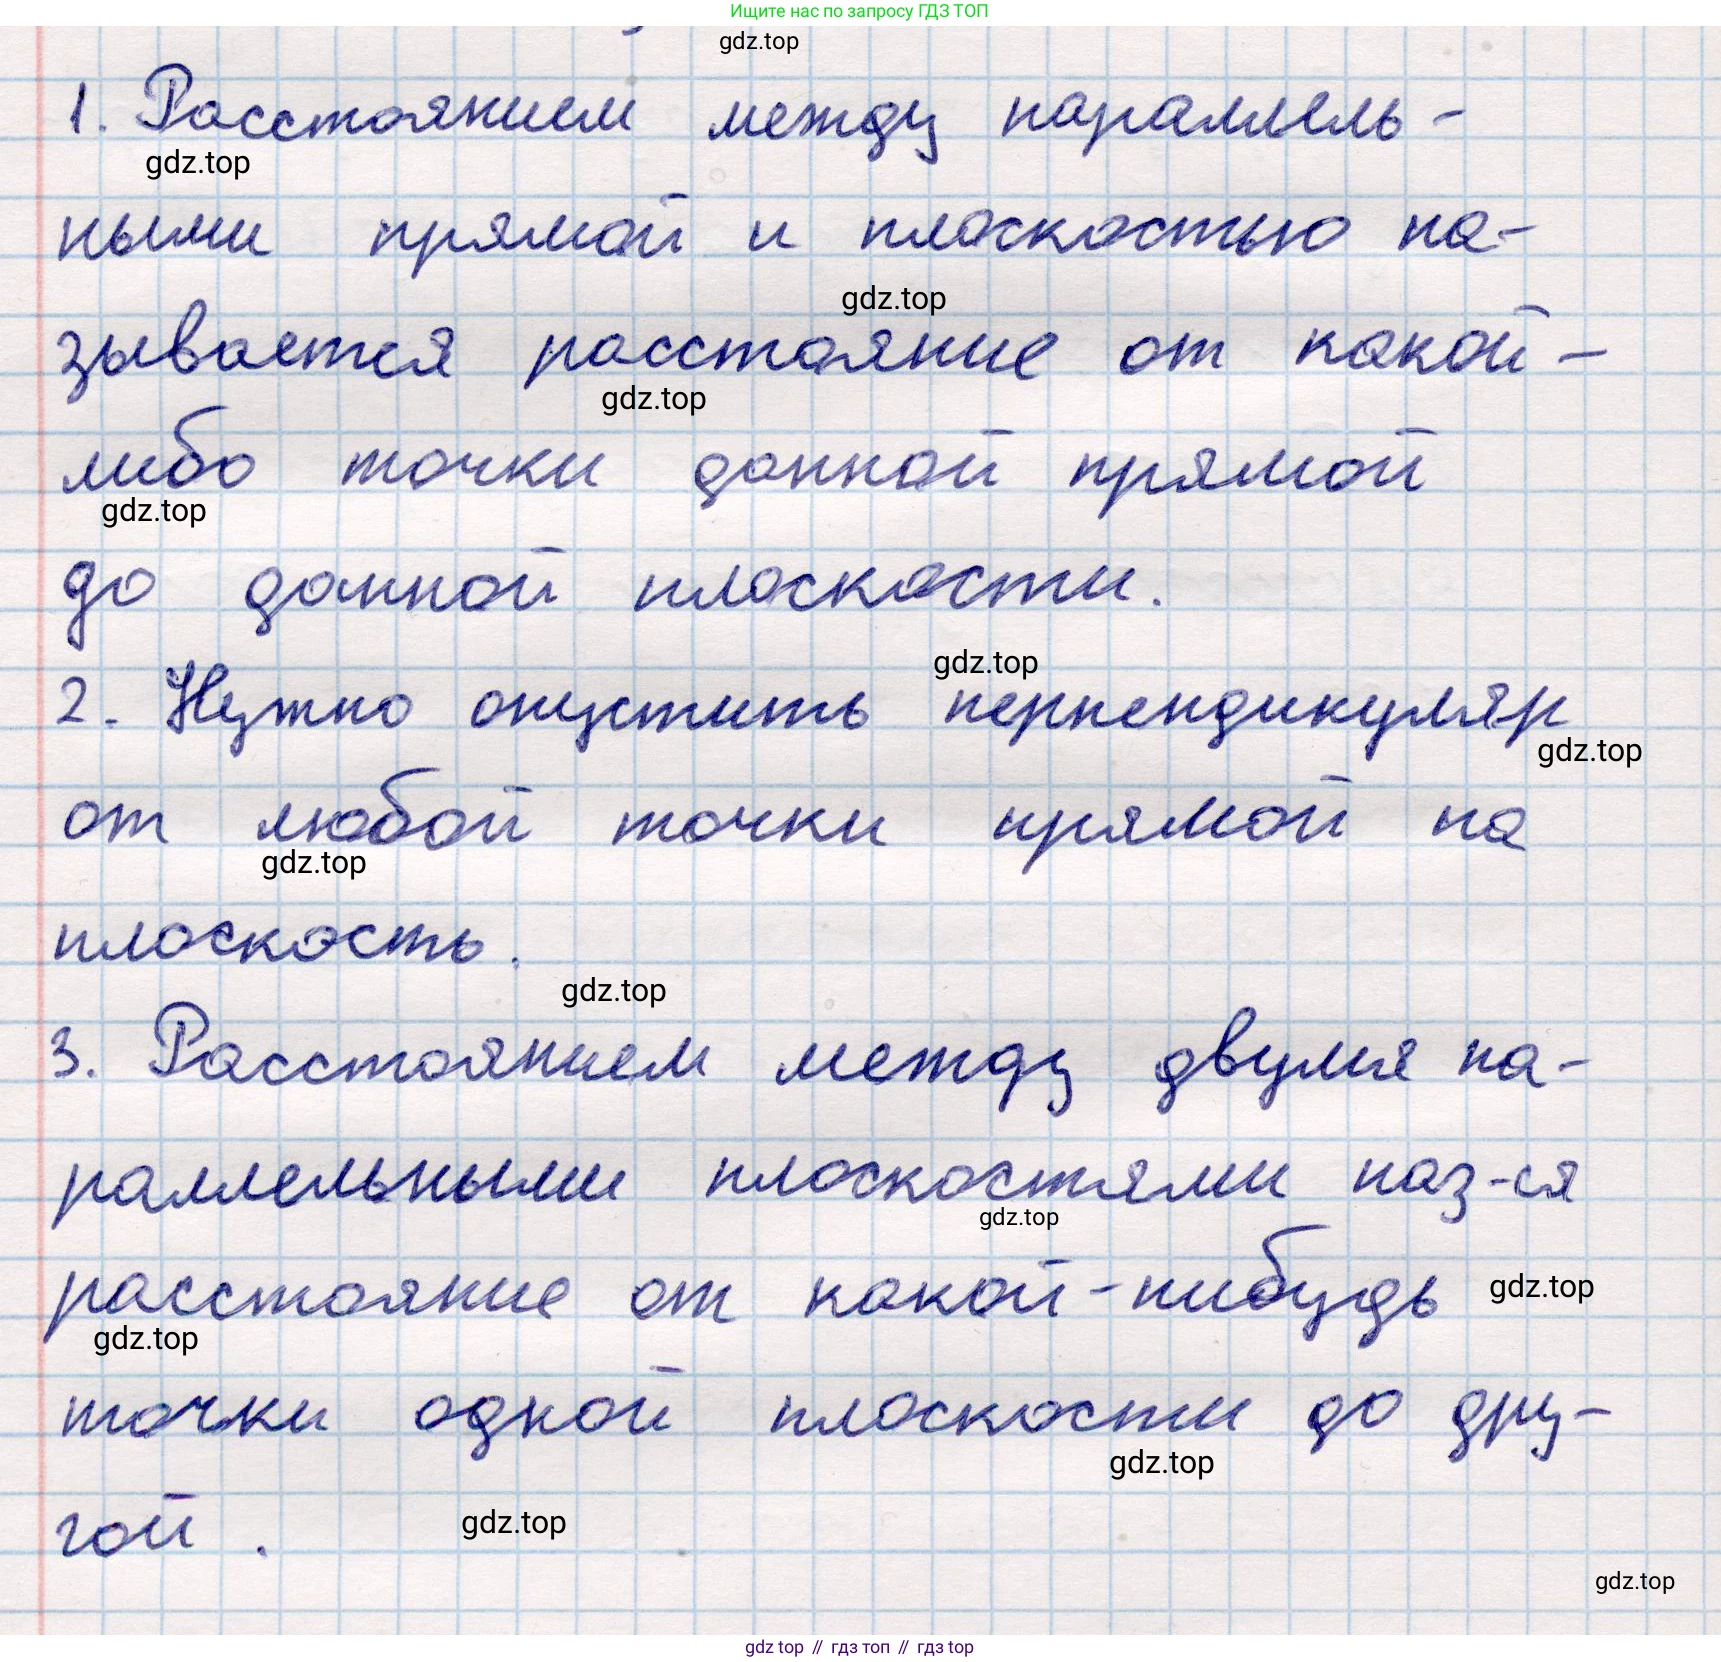 Ищите нас по запросу ГДЗ ТОП
gdz.top
1. Расстоянием между параллель-
gdz.top
ными прямой и плоскостью на-
gdz.top
зывается расстояние от какой-
gdz.top
либо точки данной прямой
gdz.top
до данной плоскости.
gdz.top
2. Нужно опустить перпендикуляр
gdz.top
от любой точки прямой на
gdz.top
плоскость.
gdz.top
3. Расстоянием между двумя па-
раллельными плоскостями наз-ся
gdz.top
расстояние от какой-нибудь
gdz.top
gdz.top
точки одной плоскости до дру-
gdz.top
гой.
gdz.top
gdz.top
gdz top // гдз топ // гдз top